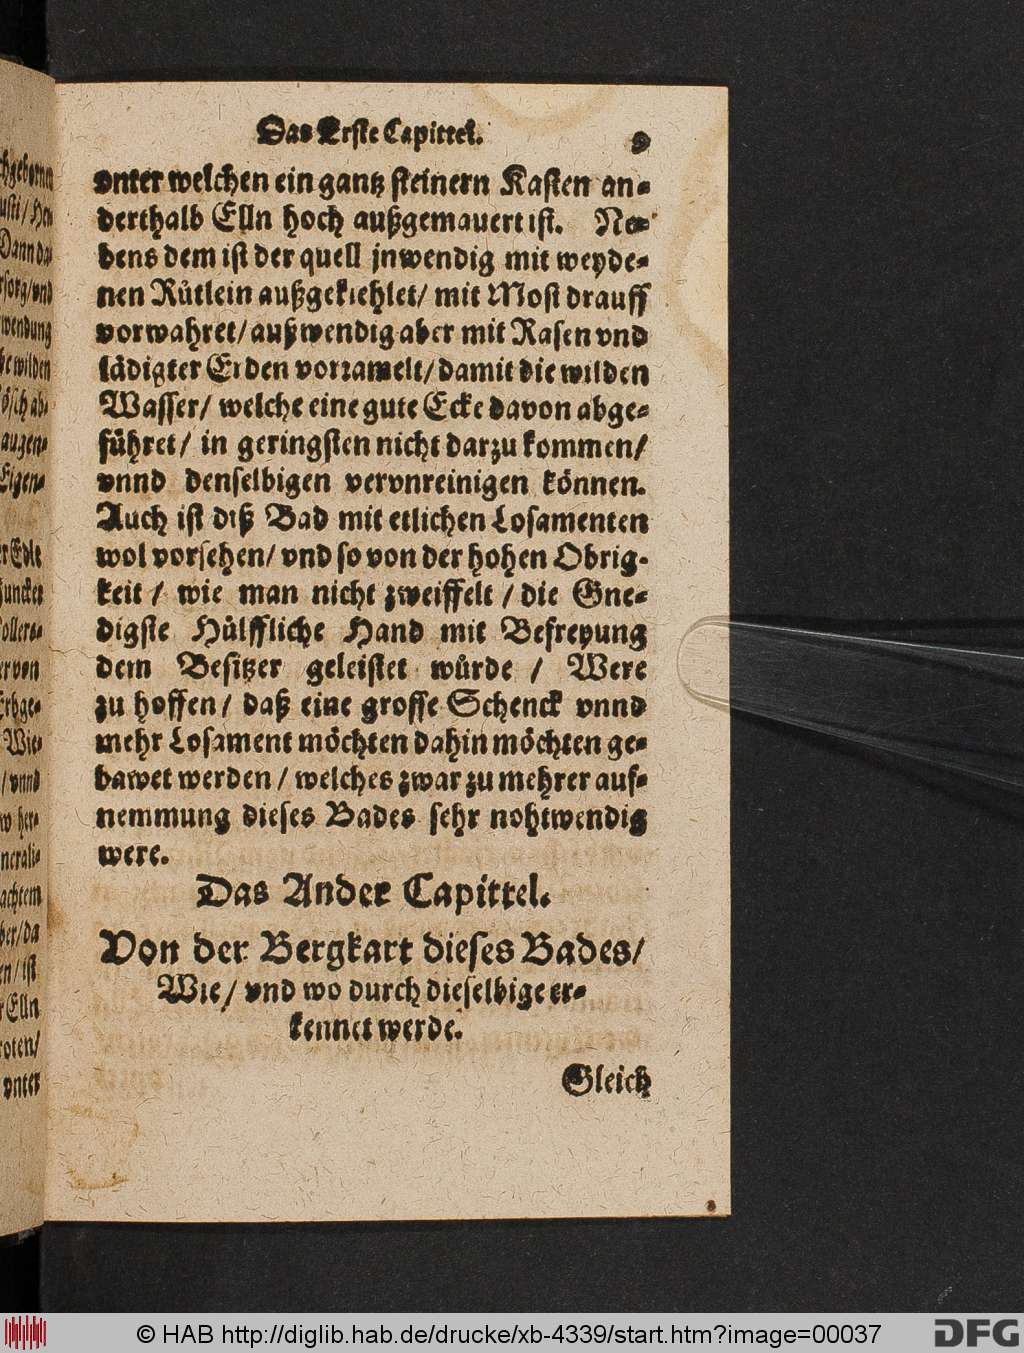 Das Erste Capittel. 9
vnter welchen ein gantz steinern Kasten an-
derthalb Elln hoch außgemauert ist. Ne-
bens dem ist der quell jnwendig mit weyde-
nen Rütlein außgekiehlet/ mit Most drauff
vorwahret/ außwendig aber mit Rasen vnd
lädigter Erden vorramelt/ damit die wilden
Wasser/ welche eine gute Ecke davon abge-
führet/ in geringsten nicht darzu kommen/
vnnd denselbigen vervnreinigen können.
Auch ist diß Bad mit etlichen Losamenten
wol vorsehen/ vnd so von der hohen Obrig-
keit / wie man nicht zweiffelt / die Gne-
digste Hülffliche Hand mit Befreyung
dem Besitzer geleistet würde / Were
zu hoffen/ daß eine grosse Schenck vnnd
mehr Losament möchten dahin möchten ge-
bawet werden / welches zwar zu mehrer auf-
nemmung dieses Bades sehr nohtwendig
were.
Das Ander Capittel.
Von der Bergkart dieses Bades/
Wie/ vnd wo durch dieselbige er-
kennet werde.
Gleich
© HAB http://diglib.hab.de/drucke/xb-4339/start.htm?image=00037
DFG